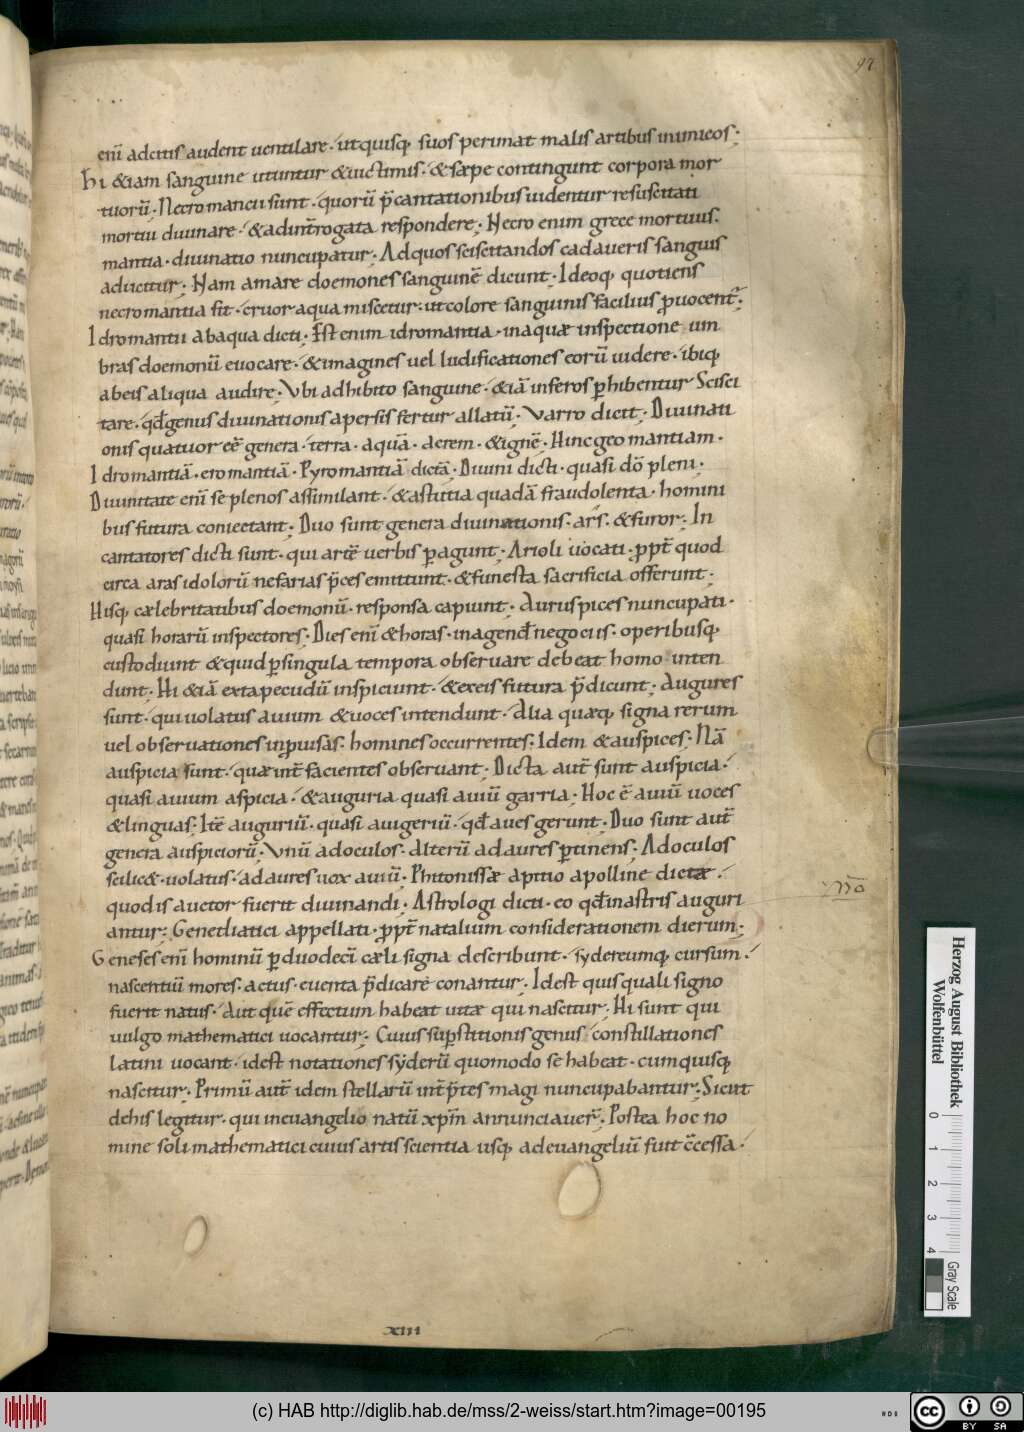 97
enī adcitis audent uentilare · ut quisq; suos perimat malis artibus inimicos;
Hi &iam sanguine utuntur &uictimis · & sæpe contingunt corpora mor
tuorū; Necromancii sunt · quorū p̄cantationibus uidentur resuscitati
mortui diuinare · & adint̄rogata respondere; Necro enim grece mortuus.
mantia · diuinatio nuncupatur; Ad quos sciscitandos cadaueris sanguis
adicitur; Nam amare doemones sanguinē dicunt · Ideoq; quotiens
necromantia fit · cruor aqua miscetur · ut colore sanguinis facilius ꝓuocent̄;
Idromantii abaqua dicti; Est enim idromantia · inaquæ inspectione um
bras doemonū euocare · & imagines uel ludificationes eorū uidere · ibiq;
abeis aliqua audire; Vbi adhibito sanguine · &iā inferos ꝑhibentur Scisci
tare · qd̄ genus diuinationis apersis fertur allatū; Varro dicit; Diuinati
onis quatuor eē genera · terra · aquā · aerem · & ignē; Hinc geomantiam ·
Idromantiā · eromantiā · Pyromantiā dictā; Diuini dicti · quasi dō pleni;
Diuinitate enī se plenos assimilant · & astutia quadā fraudolenta · homini
bus futura coniectant; Duo sunt genera diuinationis · ars · & furor; In
cantatores dicti sunt · qui artē uerbis ꝑagunt; Arioli uocati · ꝓpt̄ quod
circa aras idolorū nefarias p̄ces emittunt · & funesta sacrificia offerunt;
Hisq; cælebritatibus doemonū · responsa capiunt; Auruspices nuncupati ·
quasi horarū inspectores; Dies enī & horas · inagend̄ negociis · operibusq;
custodiunt & quid ꝑsingula tempora obseruare debeat homo inten
dunt; Hi &iā exta pecudū inspiciunt · & exeis futura p̄dicunt; Augures
sunt · qui uolatus auium & uoces intendunt · Alia quæq; signa rerum
uel obseruationes inꝓuisas · homines occurrentes; Idem & auspices; Nā
auspicia sunt · quæ int̄ facientes obseruant; Dicta aut̄ sunt auspicia ·
quasi auium aspicia · & auguria quasi auiū garria; Hoc ē auiū uoces
& linguas; Itē auguriū · quasi auigeriū · qd̄ aues gerunt; Duo sunt aut̄
genera auspiciorū; Vnū adoculos · alterū adaures ꝑtinens; Adoculos
scilic& · uolatus · adaures uox auiū; Phitonissæ apitio apolline dictæ ·
quod is auctor fuerit diuinandi; Astrologi dicti · eo qd̄ inastris auguri
antur; Genediatici appellati · ꝓpt̄ natalium considerationem dierum;
Geneses enī hominū ꝑ duodecī cæli signa describunt · sydereumq; cursum ·
nascentiū mores · actus · euenta p̄dicare conantur · Idest quis quali signo
fuerit natus · Aut quē effectum habeat uitæ qui nascitur; Hi sunt qui
uulgo mathematici uocantur; Cuius suꝑstitionis genus · constillationes
Latini uocant · idest notationes syderū quomodo se habeat · cum quisq;
nascitur; Primū aut̄ idem stellarū int̄p̄tes magi nuncupabantur; Sicut
dehis legitur · qui ineuangelio natū xp̄m annunciauer̄; Postea hoc no
mine soli mathematici cuius artis scientia usq; adeuangeliū fuit c̄cessa ·
xiii
Herzog August Bibliothek
Wolfenbüttel
0 1 2 3 4
Gray Scale
(c) HAB http://diglib.hab.de/mss/2-weiss/start.htm?image=00195
cc BY SA